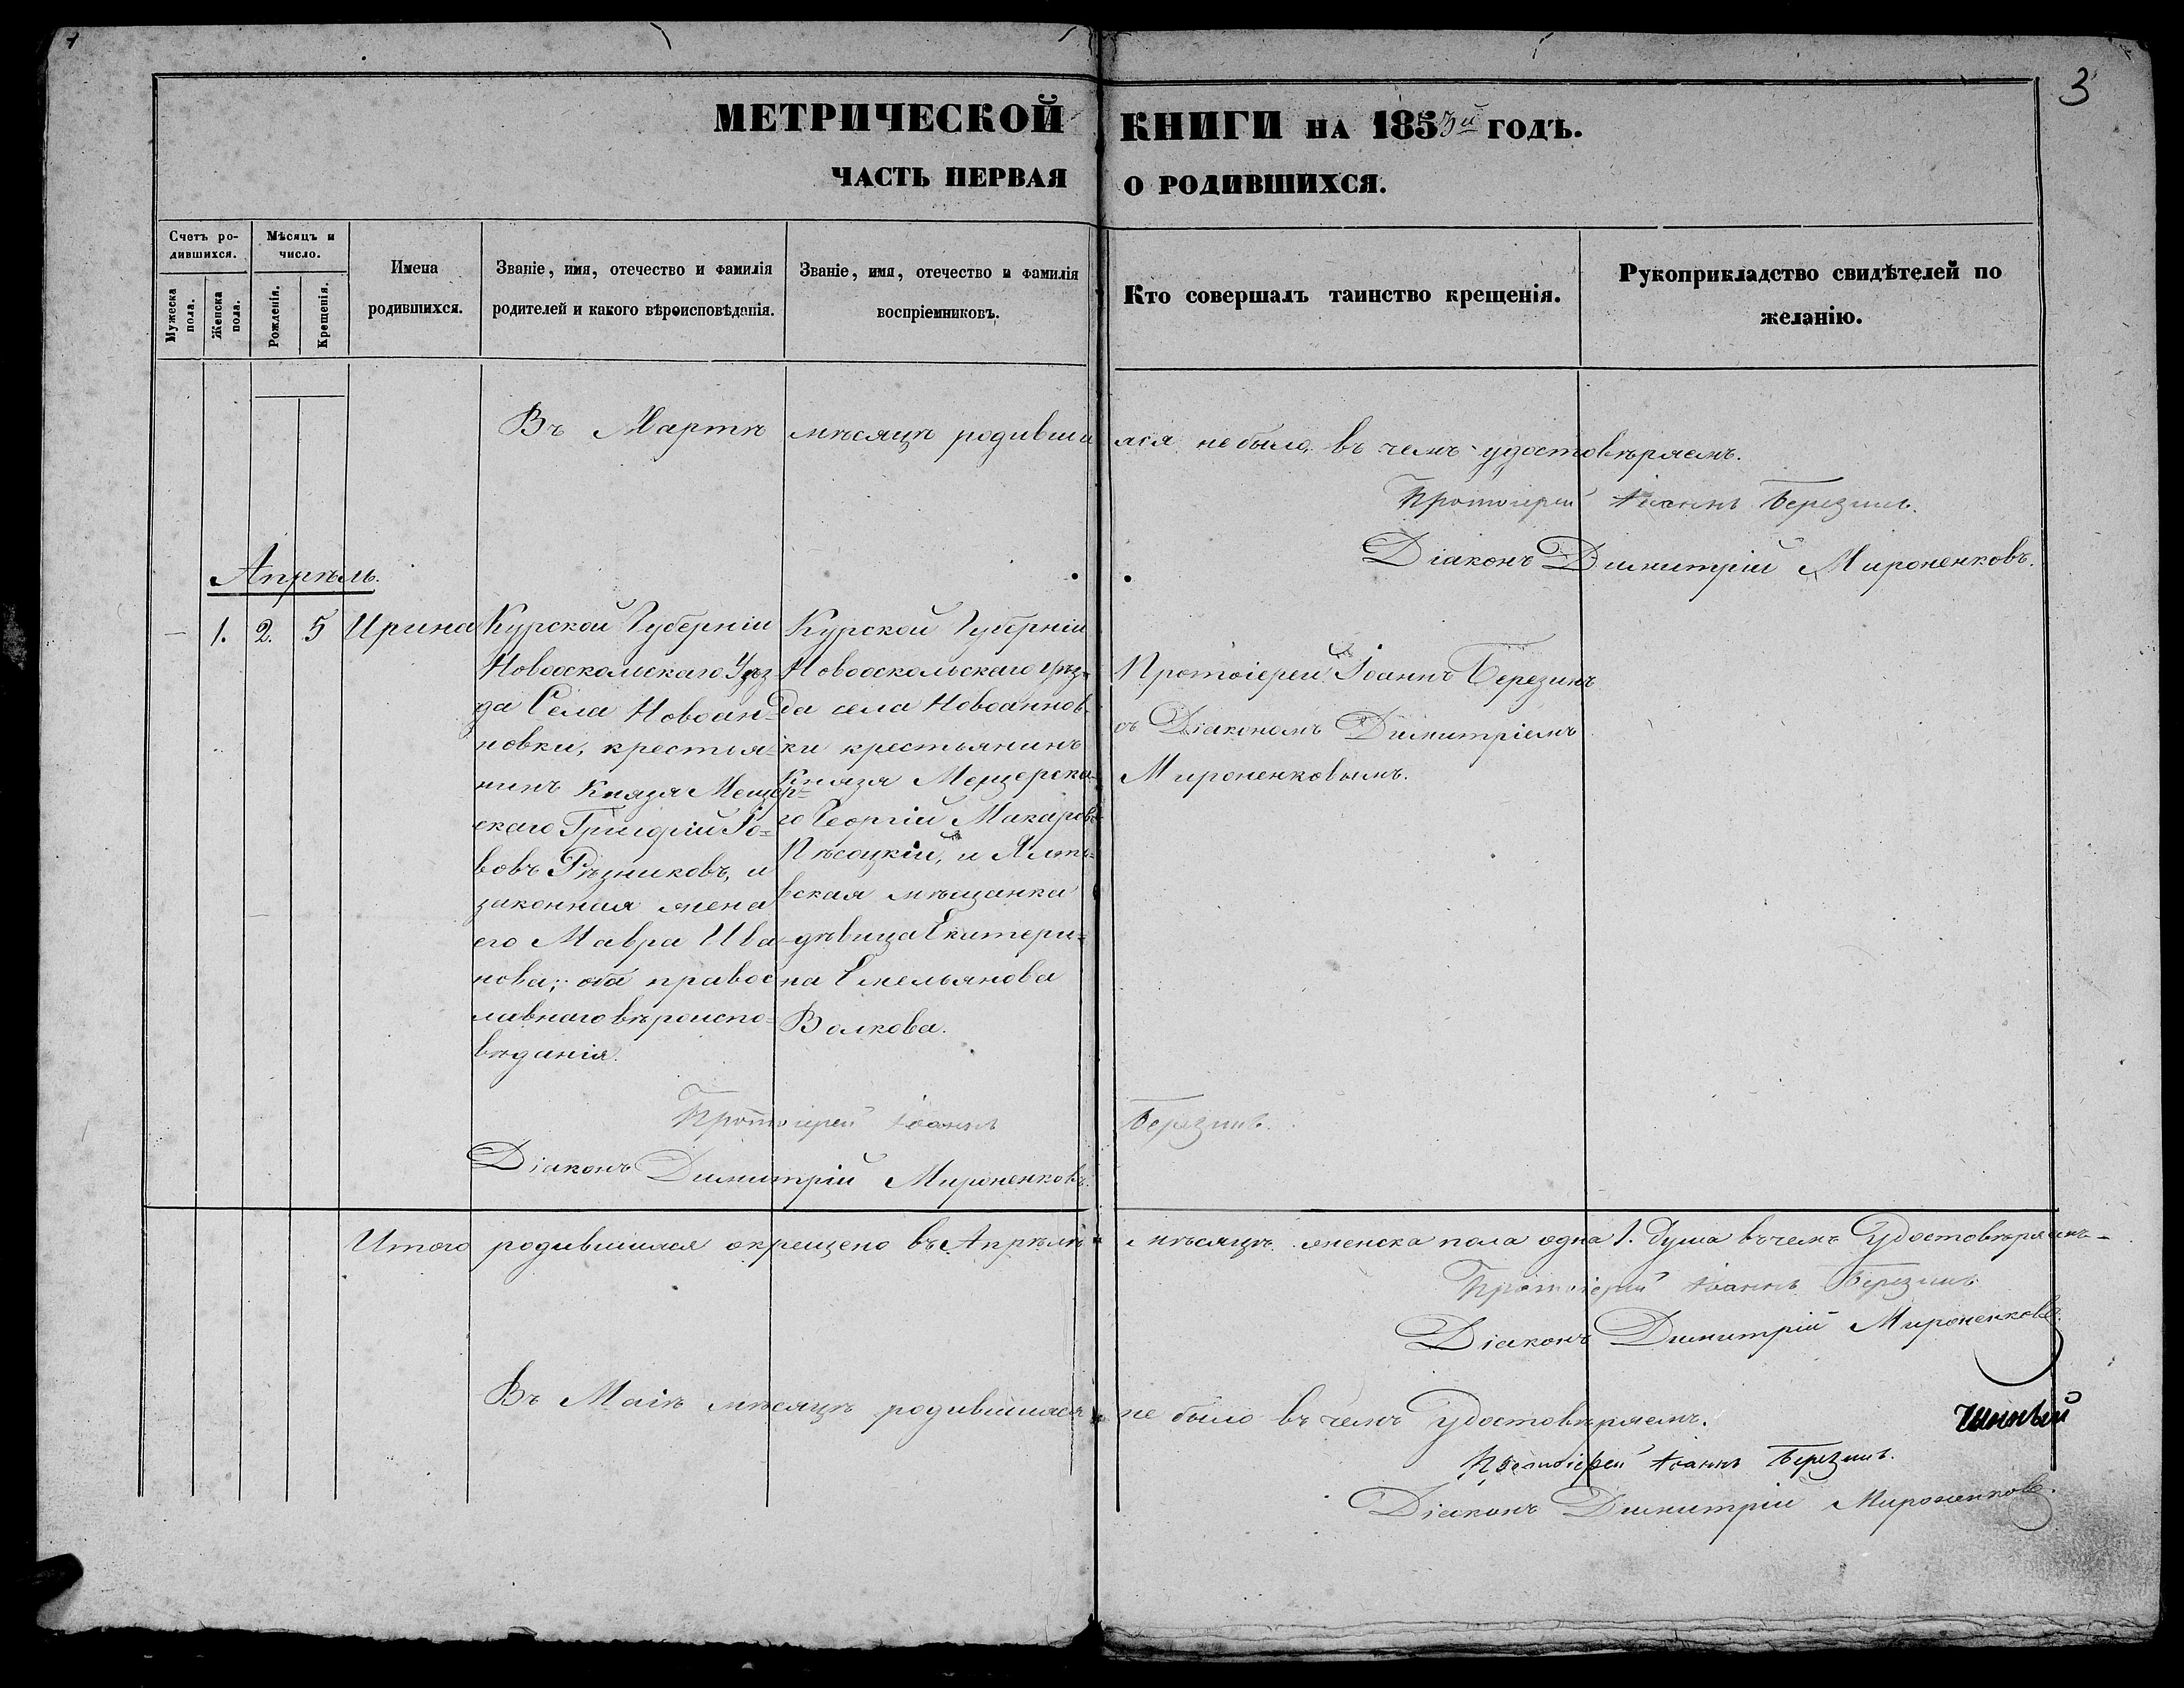 3
МЕТРИЧЕСКОЙ КНИГИ НА 1853й ГОДЪ.
ЧАСТЬ ПЕРВАЯ О РОДИВШИХСЯ.
Счетъ ро-
дившихся.
Мужеска
пола.
Женска
пола.
Мѣсяцъ и
число.
Рожденія.
Крещенія.
Имена
родившихся.
Званіе, имя, отечество и фамилія
родителей и какого вѣроисповѣданія.
Званіе, имя, отечество и фамилія
воспріемниковъ.
Кто совершалъ таинство крещенія.
Рукоприкладство свидѣтелей по
желанію.
Въ Мартѣ мѣсяцѣ родивши яся не было, въ чемъ удостовѣряемъ.
Протоіерей Іоаннъ Березинъ.
Діаконъ Димитрій Мироненковъ.
Апрѣль.
— 1. 2. 5 Ирина
Курской Губерніи
Новооскольскаго Уѣз
да Села Новоан=
новки, крестья=
нинъ Князя Мещер=
скаго Григорій Іо=
вовъ Рѣзниковъ, и
законная жена
его Мавра Ива-
нова; оба правос
лавнаго вѣроиспо-
вѣданія.
Курской Губерніи
Новооскольскаго уѣз-
да села Новоаннов-
ки крестьянинъ
Князя Мещерска-
го Георгій Макаровъ
Пѣсоцкій, и Ялти-
вская мѣщанка
дѣвица Екатери=
на Емельянова
Волкова.
Протоіерей Іоаннъ Березинъ
съ Діакономъ Димитріемъ
Мироненковымъ.
Протоіерей Іоаннъ Березинъ.
Діаконъ Димитрій Мироненковъ.
Итого родившихся окрещено въ Апрѣлѣ мѣсяцѣ женска пола одна 1. душа въ чемъ Удостовѣряемъ-
Протоіерей Іоаннъ Березинъ
Діаконъ Димитрій Мироненковъ.
Въ Маіѣ мѣсяцѣ родившихся не было въ чемъ Удостовѣряемъ.
Протоіерей Іоаннъ Березинъ.
Діаконъ Димитрій Мироненковъ.